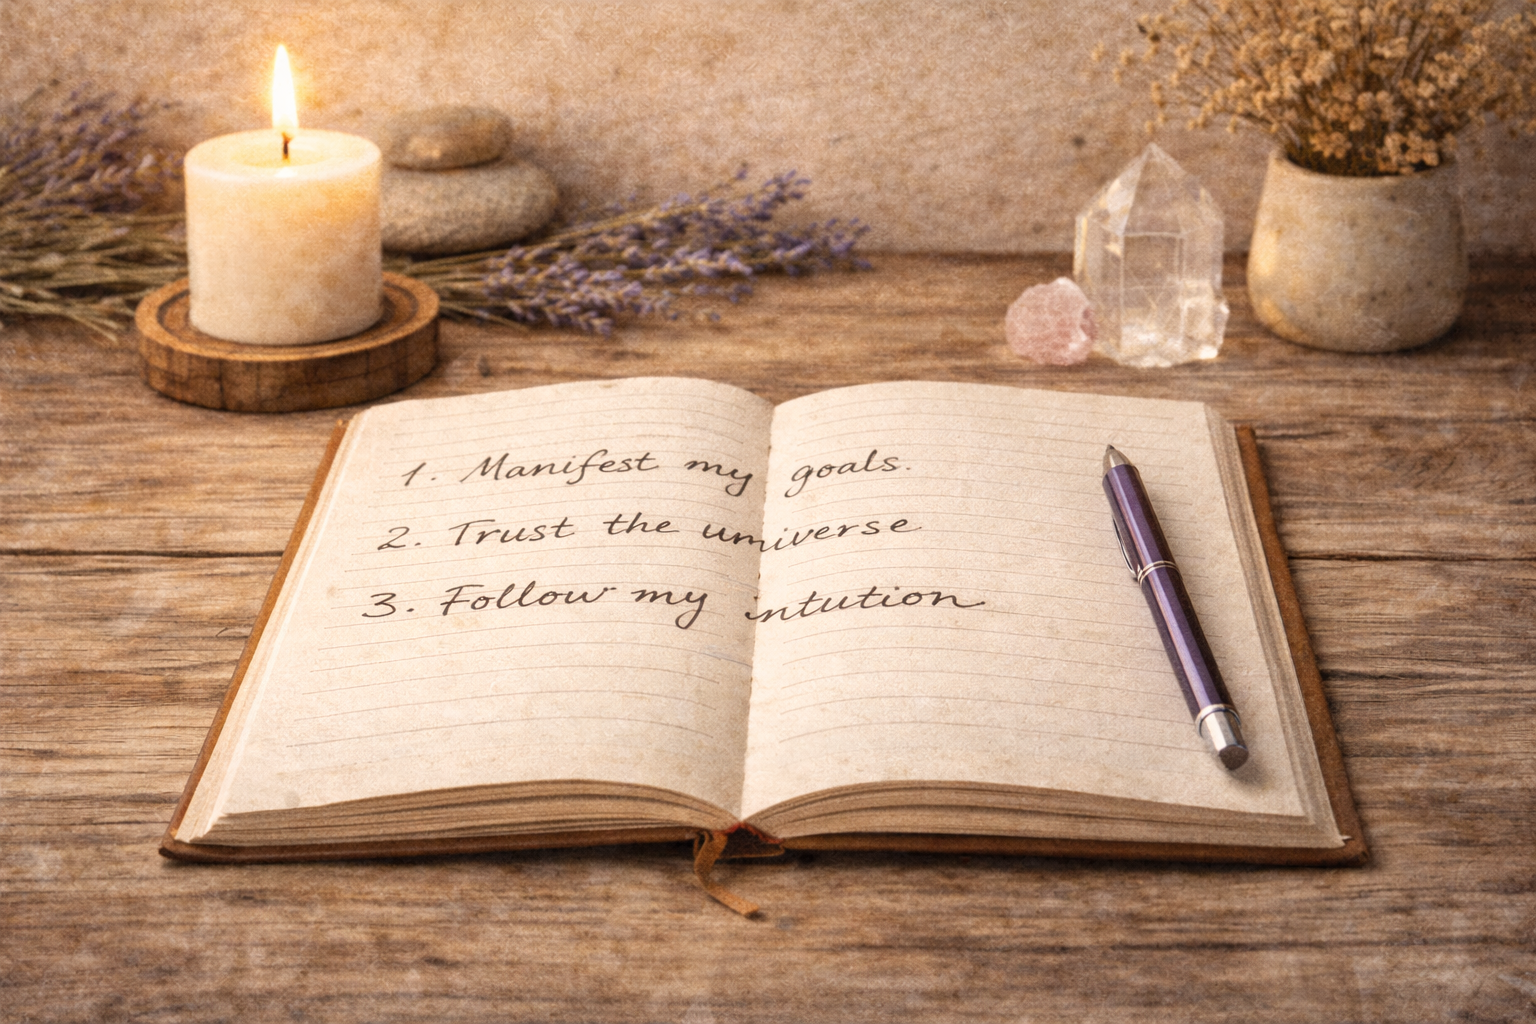 1. Manifest my goals.
2. Trust the umiverse
3. Follow my intution